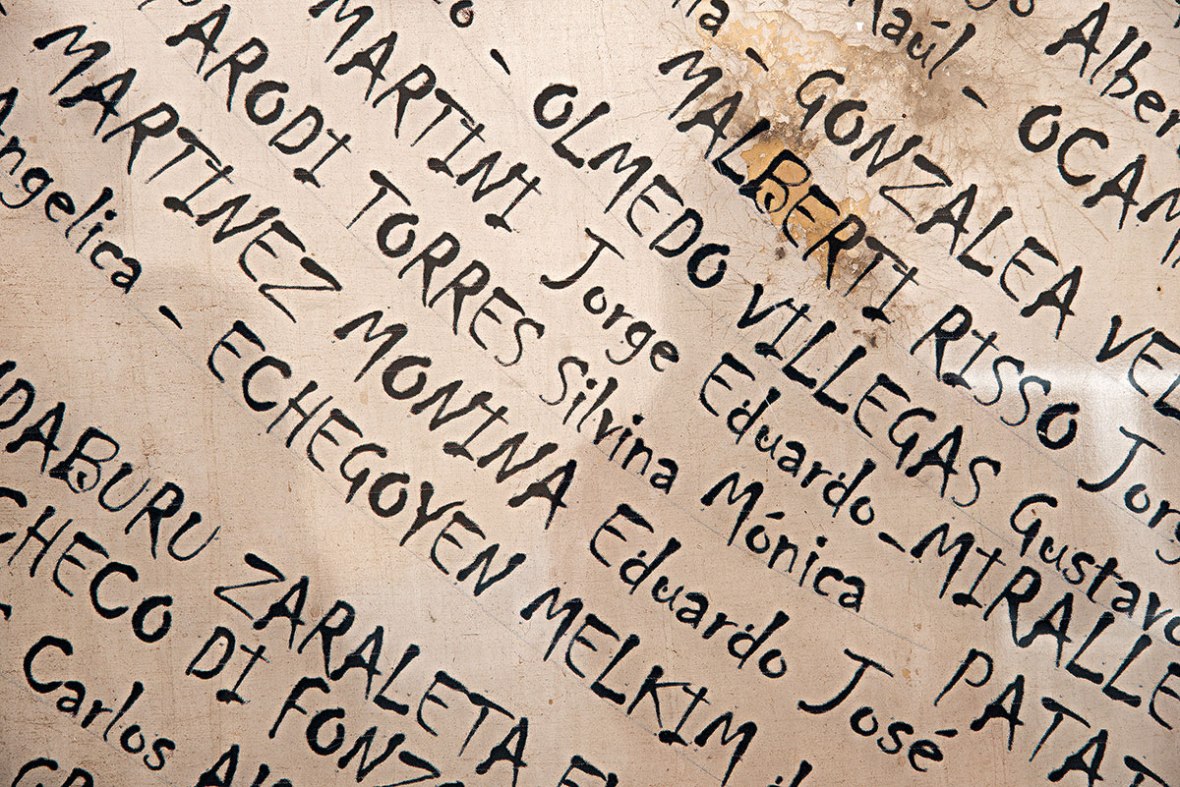 Alber
Raúl - OCAM
- GONZALEA VEL
MALBERTI RISSO Jorg
- OLMEDO VILLEGAS Gustavo
MARTINI Jorge Eduardo - MIRALLE
PARODI TORRES Silvina Mónica PATAT
MARTINEZ MONINA Eduardo José
Angelica - ECHEGOYEN MELKIM
DABURU ZARALETA
CHECO DI FONZ
Carlos